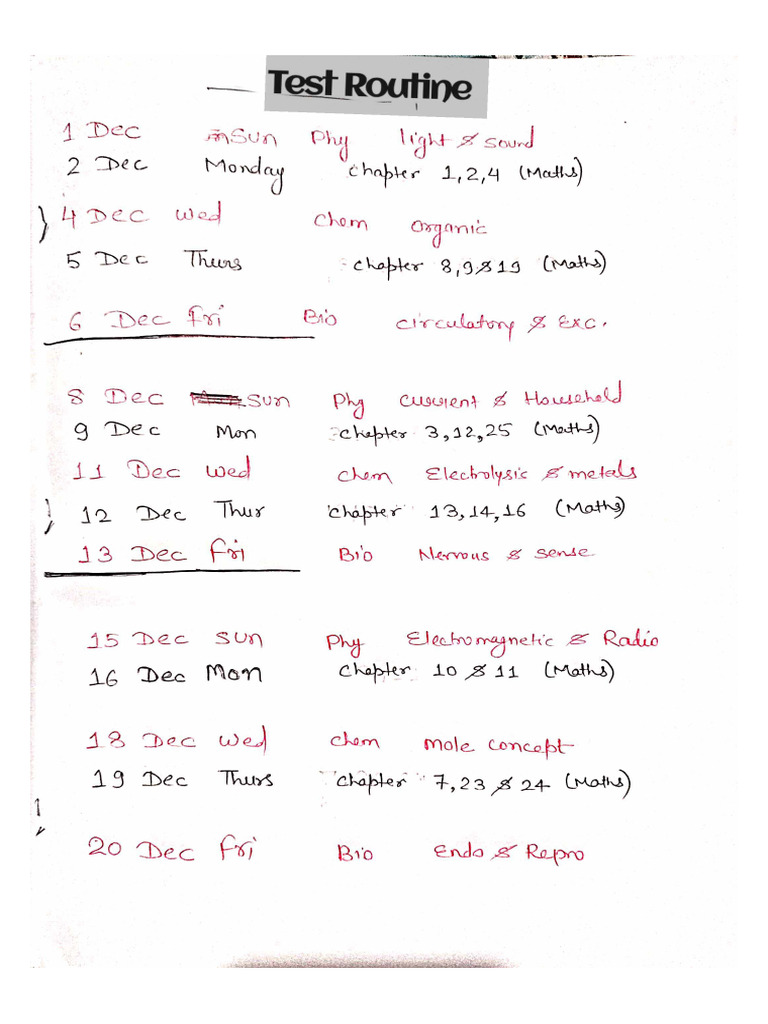 Test Routine
1 Dec Sun Phy light & sound
2 Dec Monday chapter 1,2,4 (Maths)
4 Dec Wed Chem Organic
5 Dec Thurs chapter 8,9 & 19 (Maths)
6 Dec Fri Bio Circulatory & Exc.
8 Dec Sun Phy Current & Household
9 Dec Mon chapter 3,12,25 (Maths)
11 Dec Wed Chem Electrolysis & metals
12 Dec Thur chapter 13,14,16 (Maths)
13 Dec Fri Bio Nervous & sense
15 Dec Sun Phy Electromagnetic & Radio
16 Dec Mon chapter 10 & 11 (Maths)
18 Dec Wed Chem mole concept
19 Dec Thurs chapter 7,23 & 24 (Maths)
20 Dec Fri Bio Endo & Repro